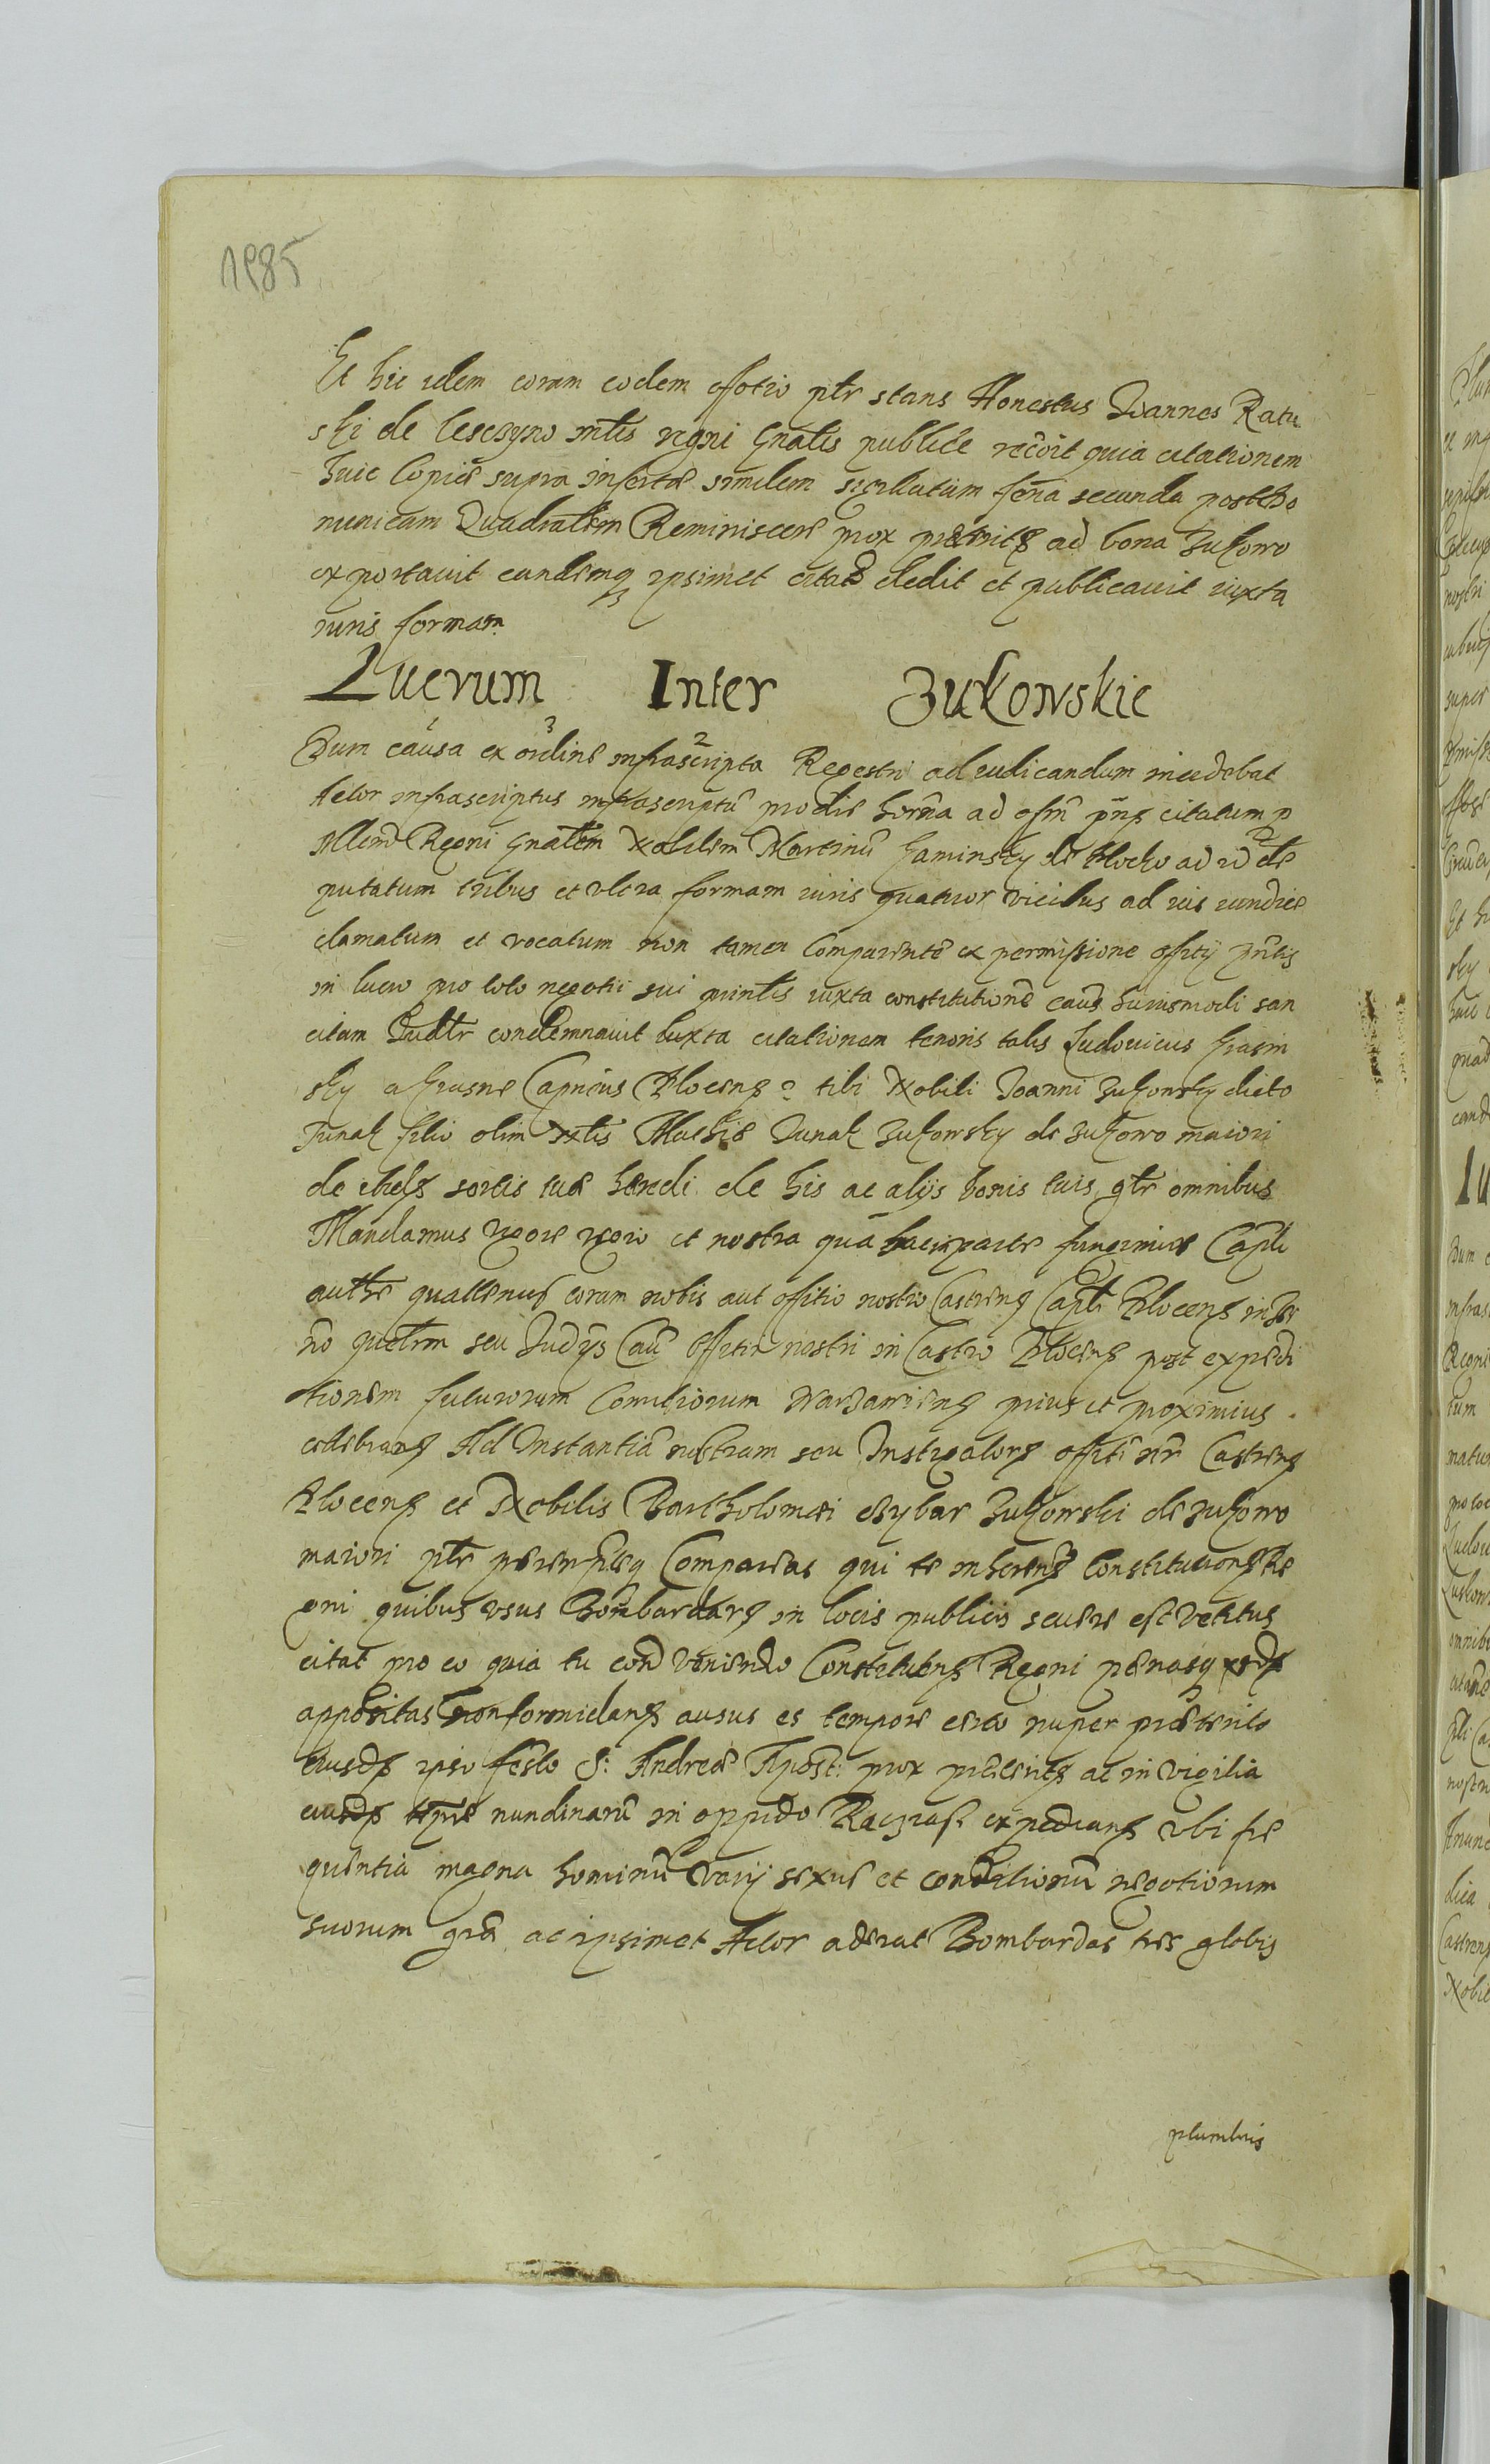 1985
Et hic idem coram eodem offotio ptr stans Honestus Joannes Ratu
ski de Cesczyno mtis regni gnalis publice recoit quia citationem
huic Copiæ supra insertæ similem sigillatam feria secunda post Do
minicam Quadralem Reminiscere prox præteritę ad bona Zukowo
exportavit eandemq ipsimet citato dedit et publicavit iuxta
iuris formam
Lucrum Inter Zukowskie
Dum causa ex ordine infrascripta Regestri ad iudicandum incedebat
Actor infrascriptus infrascriptū prodie horna ad ofm pns citatum p
Mlem Regni gnalem Nobilem Martinū Kaminsky de Plocko ad id de
putatum tribus et ultra formam iuris quatuor vicibus ad ius iundice
clamatum et vocatum non tamen Comparente ex permissione offity pntis
in lucro pro toto negotii sui printis iuxta constitutione caus huiusmodi san
citam Iudlr condemnavit Iuxta citationem tenoris talis Ludovicus Krasin
sky a Krasne Capneus Plocens tibi Nobili Joanni Zukowsky dicto
Junak filio olim Nlis Mathiæ Junak Zukowsky de Zukowo maiori
de ibidę sortis tuæ hæredi de his ac alijs bonis tuis gtr omnibus
Mandamus rigore regio et nostra qua hac in parte fungimur Capli
authe quattenus coram nobis aut offitio nostro Castrens Capli Plocens in Ter
no quelrm seu Judijs Cau Offitii nostri in Castro Plocens post expedi
tionem futurorum Comitiorum Warzawiens prius et proximius
celebrans Ad Instantiā nostram seu Instigatorę offiti nr Castrens
Plocens et Nobilis Bartholomæi Czybar Zukowski de Zukowo
maiori ptr peremptieq Compareas qui te inherens Constitutions Re
gni quibus usus Bombardarę in locis publicis severe est vetitus
citat pro eo quia tu conDveniendo Constitutiens Regni pænasq
appositas non formidans ausus es tempore certo nuper præterito
eiusdę ipso festo S: Andreæ Apost: prox præteritę ac in vigilia
eiusdę nundinarū in oppido Raczias expedians ubi fre
quentia magna hominū varij sexus et conditionū negotiorum
suorum gra ac ipsimet Actor aderat Bombardas tres globis
plumbeis